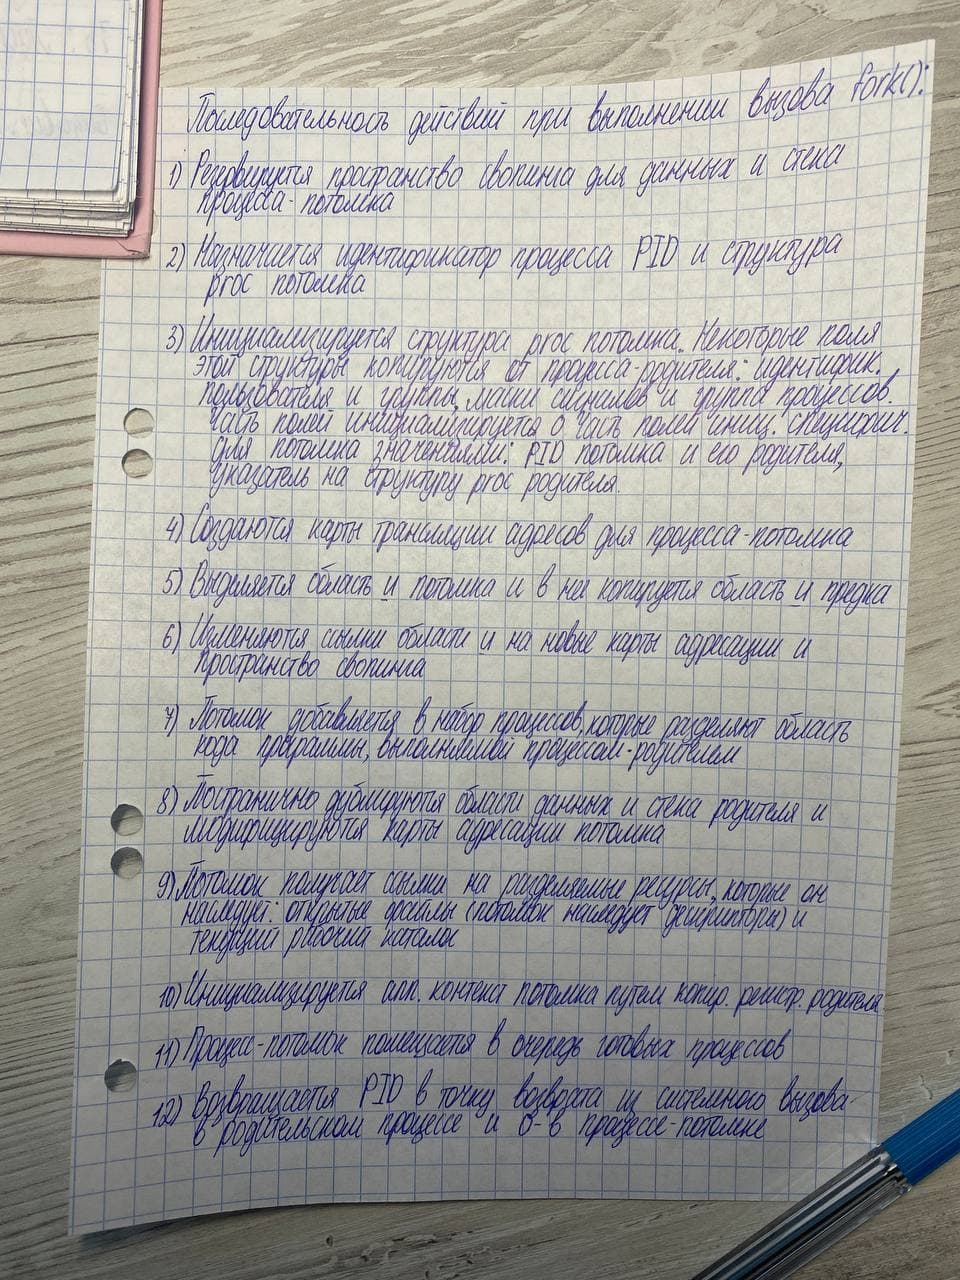 Последовательность действий при выполнении вызова fork():
1) Резервируется пространство свопинга для данных и стека
процесса-потомка
2) Назначается идентификатор процесса PID и структура
proc потомка
3) Инициализируется структура proc потомка. Некоторые поля
этой структуры копируются от процесса-родителя: идентифик.
пользователя и группы, маски сигналов и группа процессов.
Часть полей инициализируется 0 Часть полей иниц. специфич.
для потомка значениями: PID потомка и его родителя,
указатель на структуру proc родителя.
4) Создаются карты трансляции адресов для процесса-потомка
5) Выделяется область u потомка и в нее копируется область u предка
6) Изменяются ссылки области u на новые карты адресации и
пространство свопинга
7) Потомок добавляется в набор процессов, которые разделяют область
кода программы, выполняемой процессом-родителем
8) Постранично дублируются области данных и стека родителя и
модифицируются карты адресации потомка
9) Потомок получает ссылки на разделяемые ресурсы, которые он
наследует: открытые файлы (потомок наследует дескрипторы) и
текущий рабочий каталог
10) Инициализируется апп. контекст потомка путем копир. регистр. родителя
11) Процесс-потомок помещается в очередь готовых процессов
12) Возвращается PID в точку возврата из системного вызова-
в родительском процессе и 0-в процессе-потомке